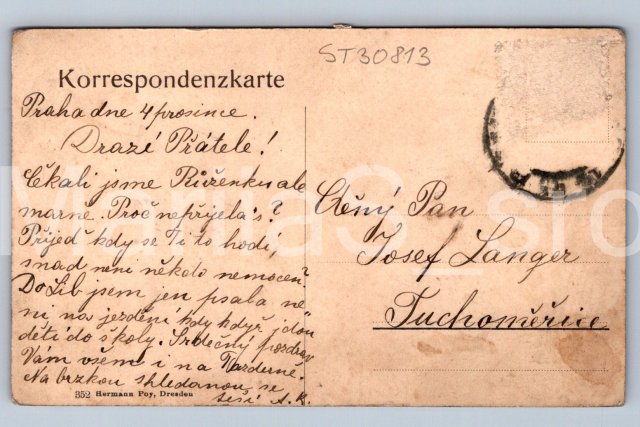 ST30813
Korrespondenzkarte
Praha dne 4 prosince.
Drazé Přátele!
Čekali jsme Růženku ale
marne. Proč nepřijela's?
Přijeď kdy se Ti to hodí,
snad neni někdo nemocen?
Do Lib jsem jen psala ne-
ni na jezdění kdy když jdou
děti do školy. Srdečný pozdrav
Vam všem i na
Na brzkou shledanou se
těší A. K.
352 Hermann Poy, Dresden
Ctěný Pan
Josef Langer
Tuchoměřice